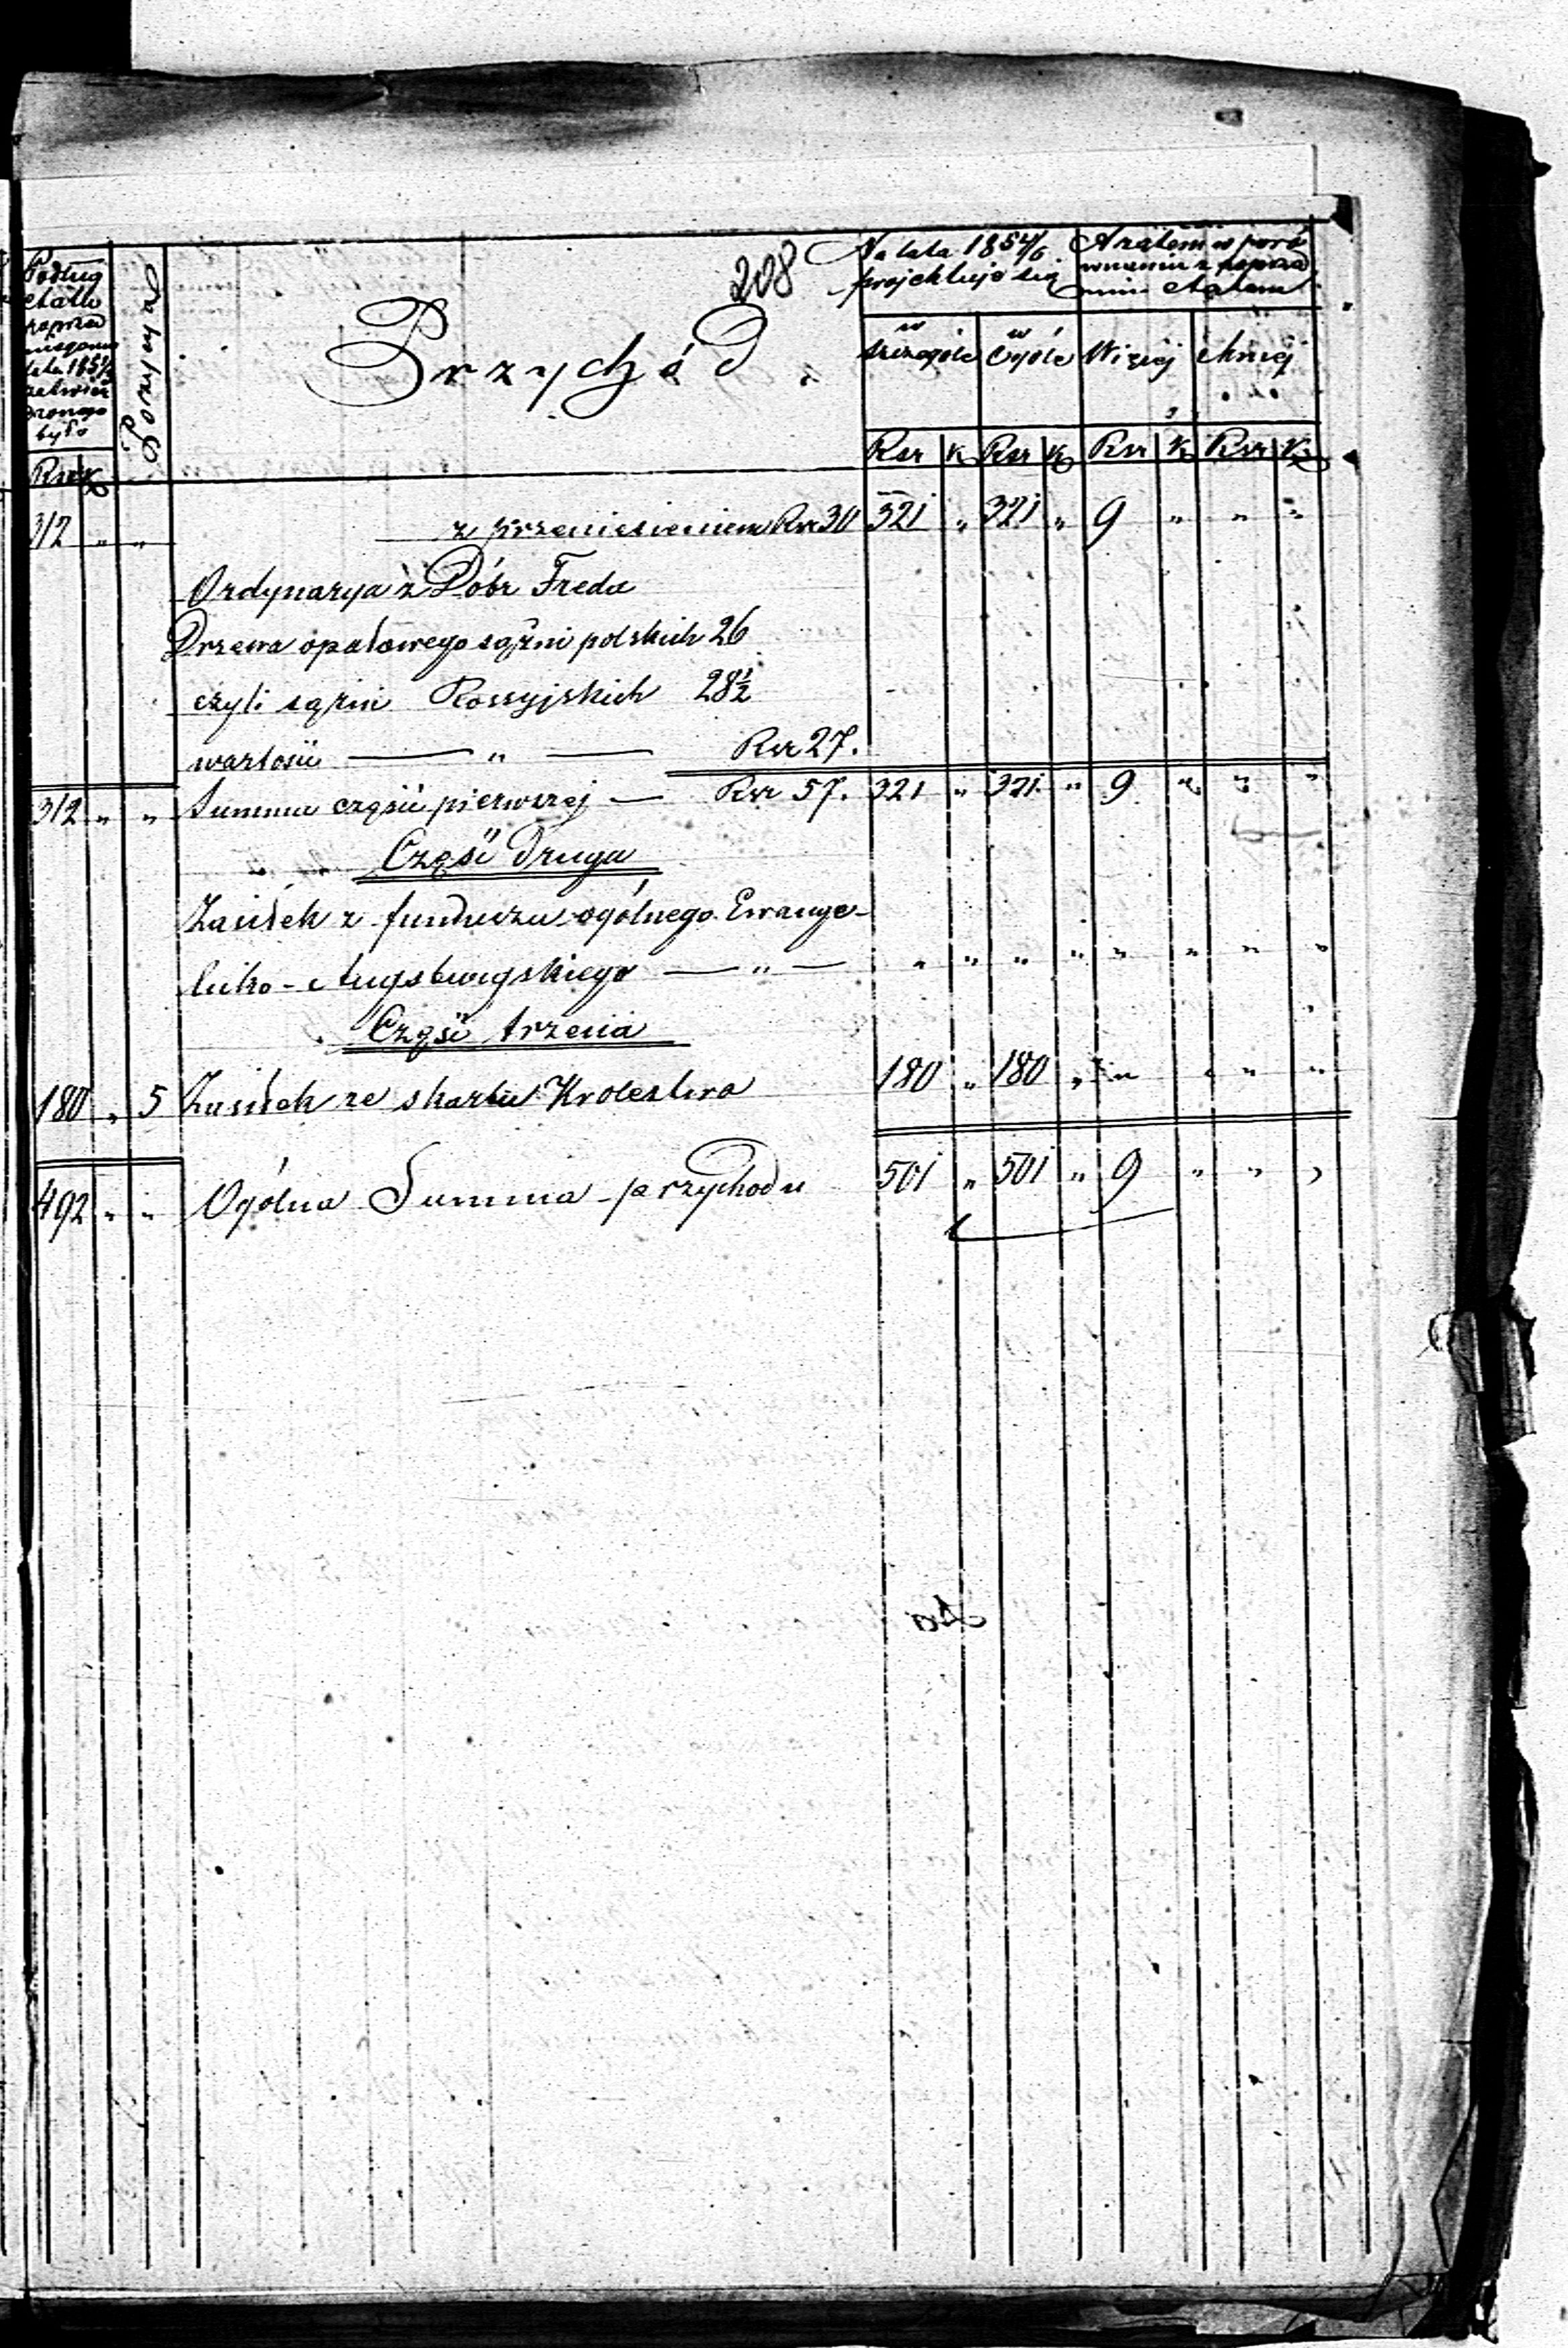 208
Podług
etatu
poprzed
niego na
lata 185½
zatwier
dzonego
było
Rsr K
Dowody
Przychód
Na lata 185 4/6
projektuje się
A zatem w poró
wnaniu z poprzed
nim etatem
w szczególe
w ogóle
Więcej
Mniej
Rsr K Rsr K Rsr K Rsr K
312 " " z przeniesienia Rsr 30 321 " 321 " 9 " " "
Ordynarya z Dóbr Freda
Drzewa opałowego sążni polskich 26
czyli sążni Rossyjskich 28½
wartości — " — Rsr 27.
312 " " Summa części pierwszej — Rsr 57. 321 " 321 " 9 " " "
Część Druga
Zasiłek z funduszu ogólnego Ewange-
licko-Augsburgskiego — " — " " " " " " " "
Część trzecia
180 " 5 Zasiłek ze skarbu Krolestwa 180 " 180 " " " " " "
492 " " Ogólna Summa przychodu 501 " 501 " 9 " " "